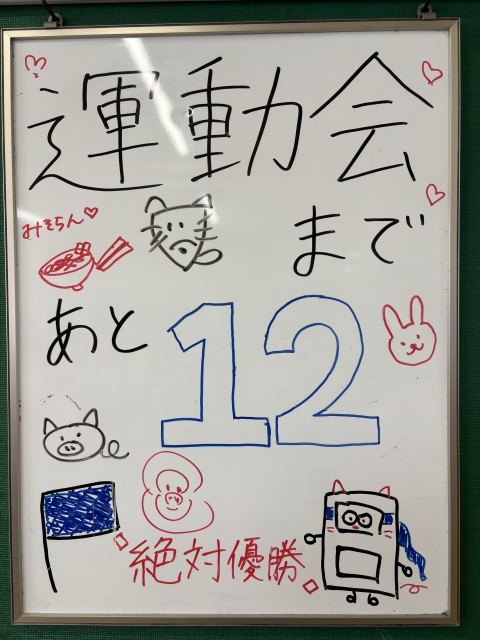 運動会
まで
みそらん♡
あと
12
絶対優勝